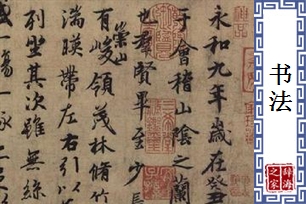 书法
辞海
之家
永和九年歲在癸
于會稽山陰之蘭
也羣賢畢至少
崇山
有峻領茂林脩竹
湍暎帶左右引以
列坐其次雖無絲
一觴一詠